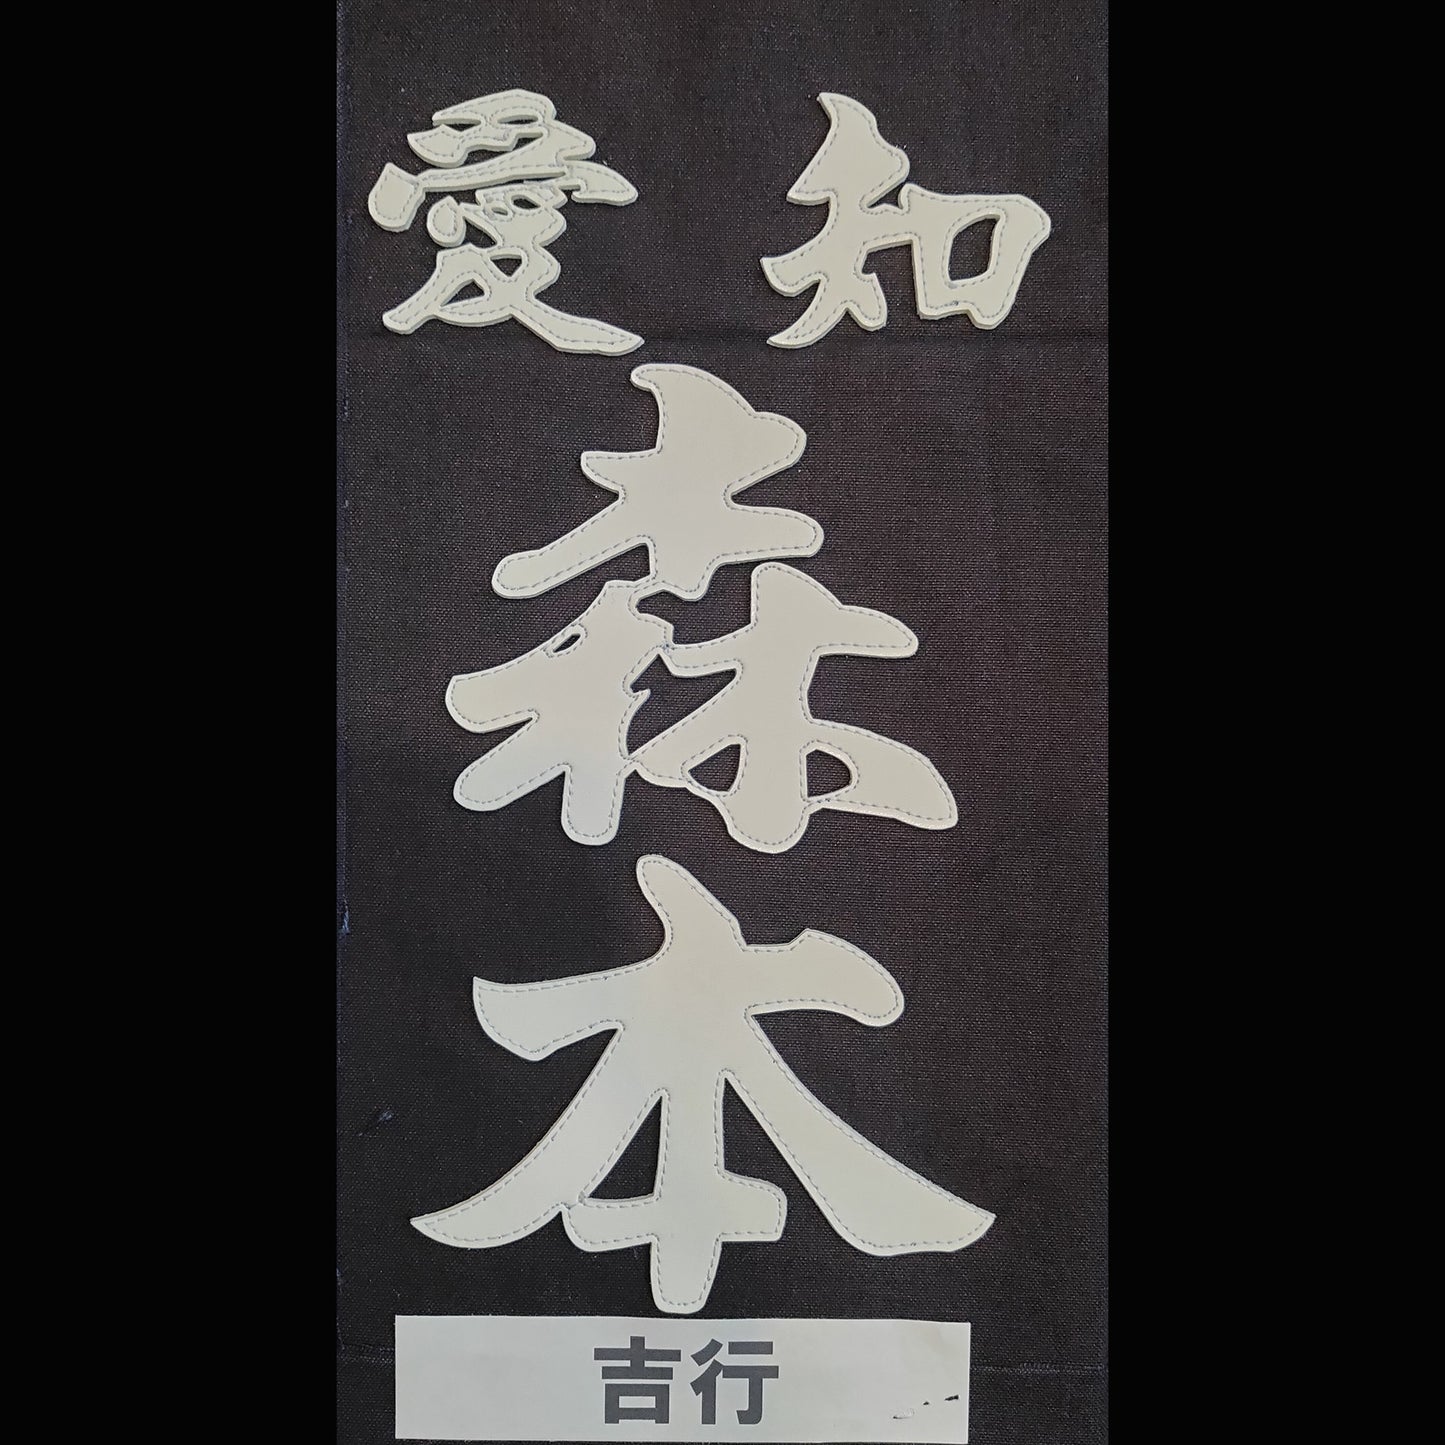 愛知
森
本
吉行